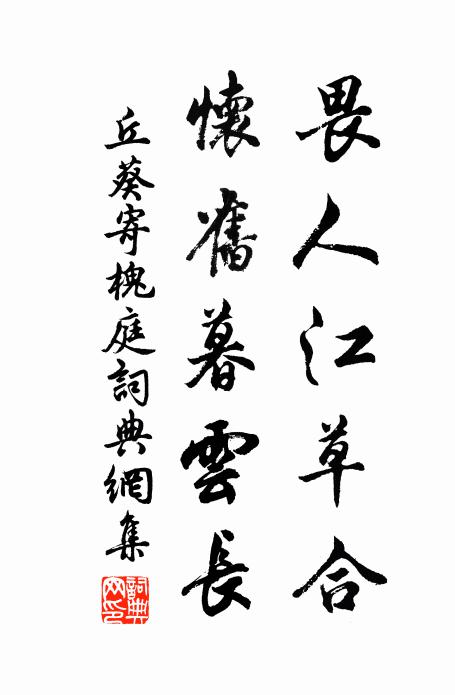 畏人江草合
懷舊暮雲長
丘葵寄槐庭詞典網集
詞典